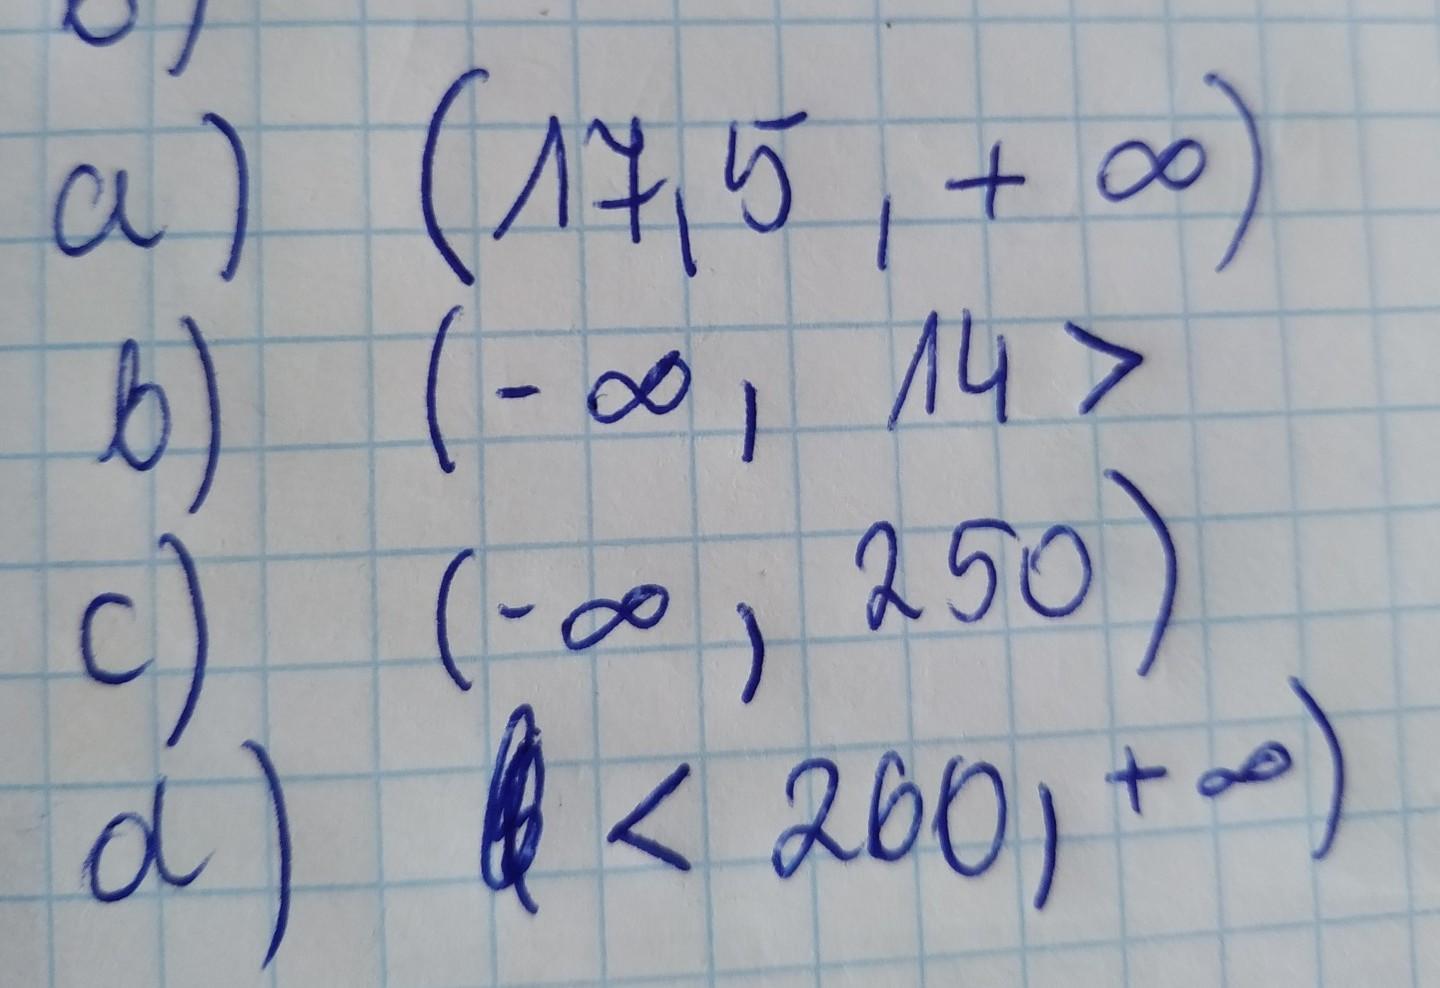 a) (17,5 , + ∞)
b) (- ∞, 14 >
c) (-∞, 250)
d) < 260, + ∞)